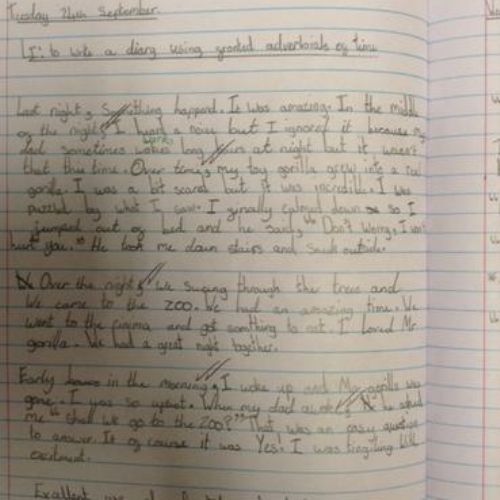 Tuesday 24th September.
LI: to write a diary using fronted adverbials of time
Last night, something happend. It was amazing. In the middle
of the night, I heard a noise but I ignored it because my
dad sometimes works long hours at night but it wasn't
that this time. Over time, my toy gorilla grew into a real
gorilla. I was a bit scared but it was incredible. I was
puzzled by what I saw. I finally calmed down so I
jumped out of bed and he said, "Don't worry, I won't
hurt you." He took me down stairs and outside.
Over the night, we swang through the trees and
We came to the zoo. We had an amazing time. We
went to the cinema and got somthing to eat. I loved Mr
gorilla. We had a great night together.
Early in the morning, I woke up and Mr gorilla was
gone. I was so upset. When my dad he asked
me "shall we go to the zoo?" That was an easy question
to answer. It of course it was Yes! I was tingiling with
exitment.
Excellent use of